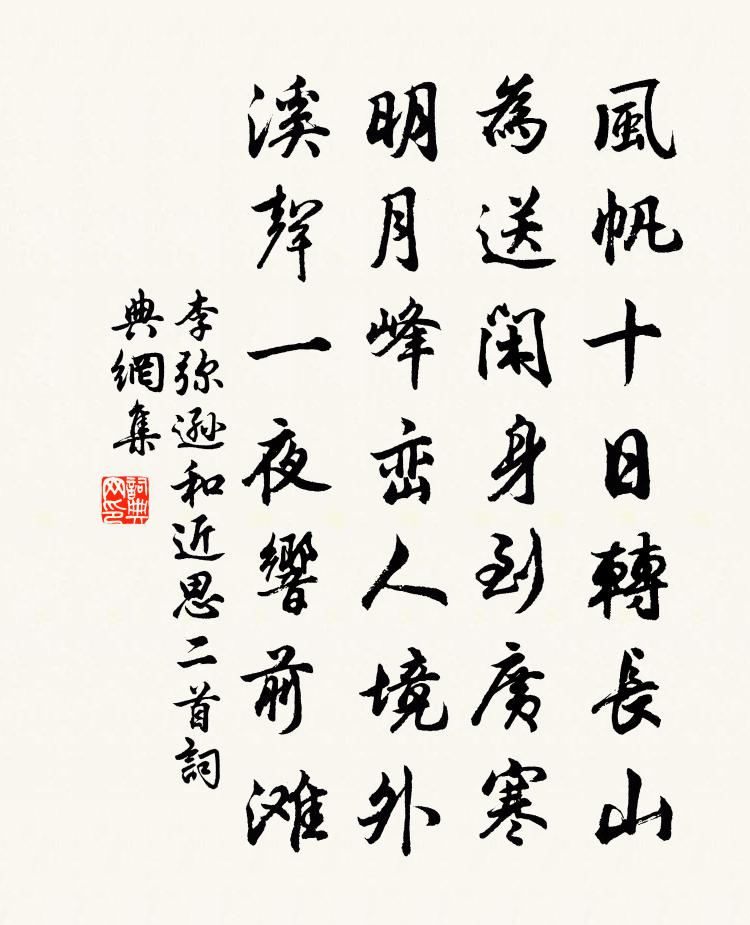 風帆十日轉長山
為送閑身到廣寒
明月峰巒人境外
溪聲一夜響前滩
李弥遜和近思二首詞
典網集
詞典
网印